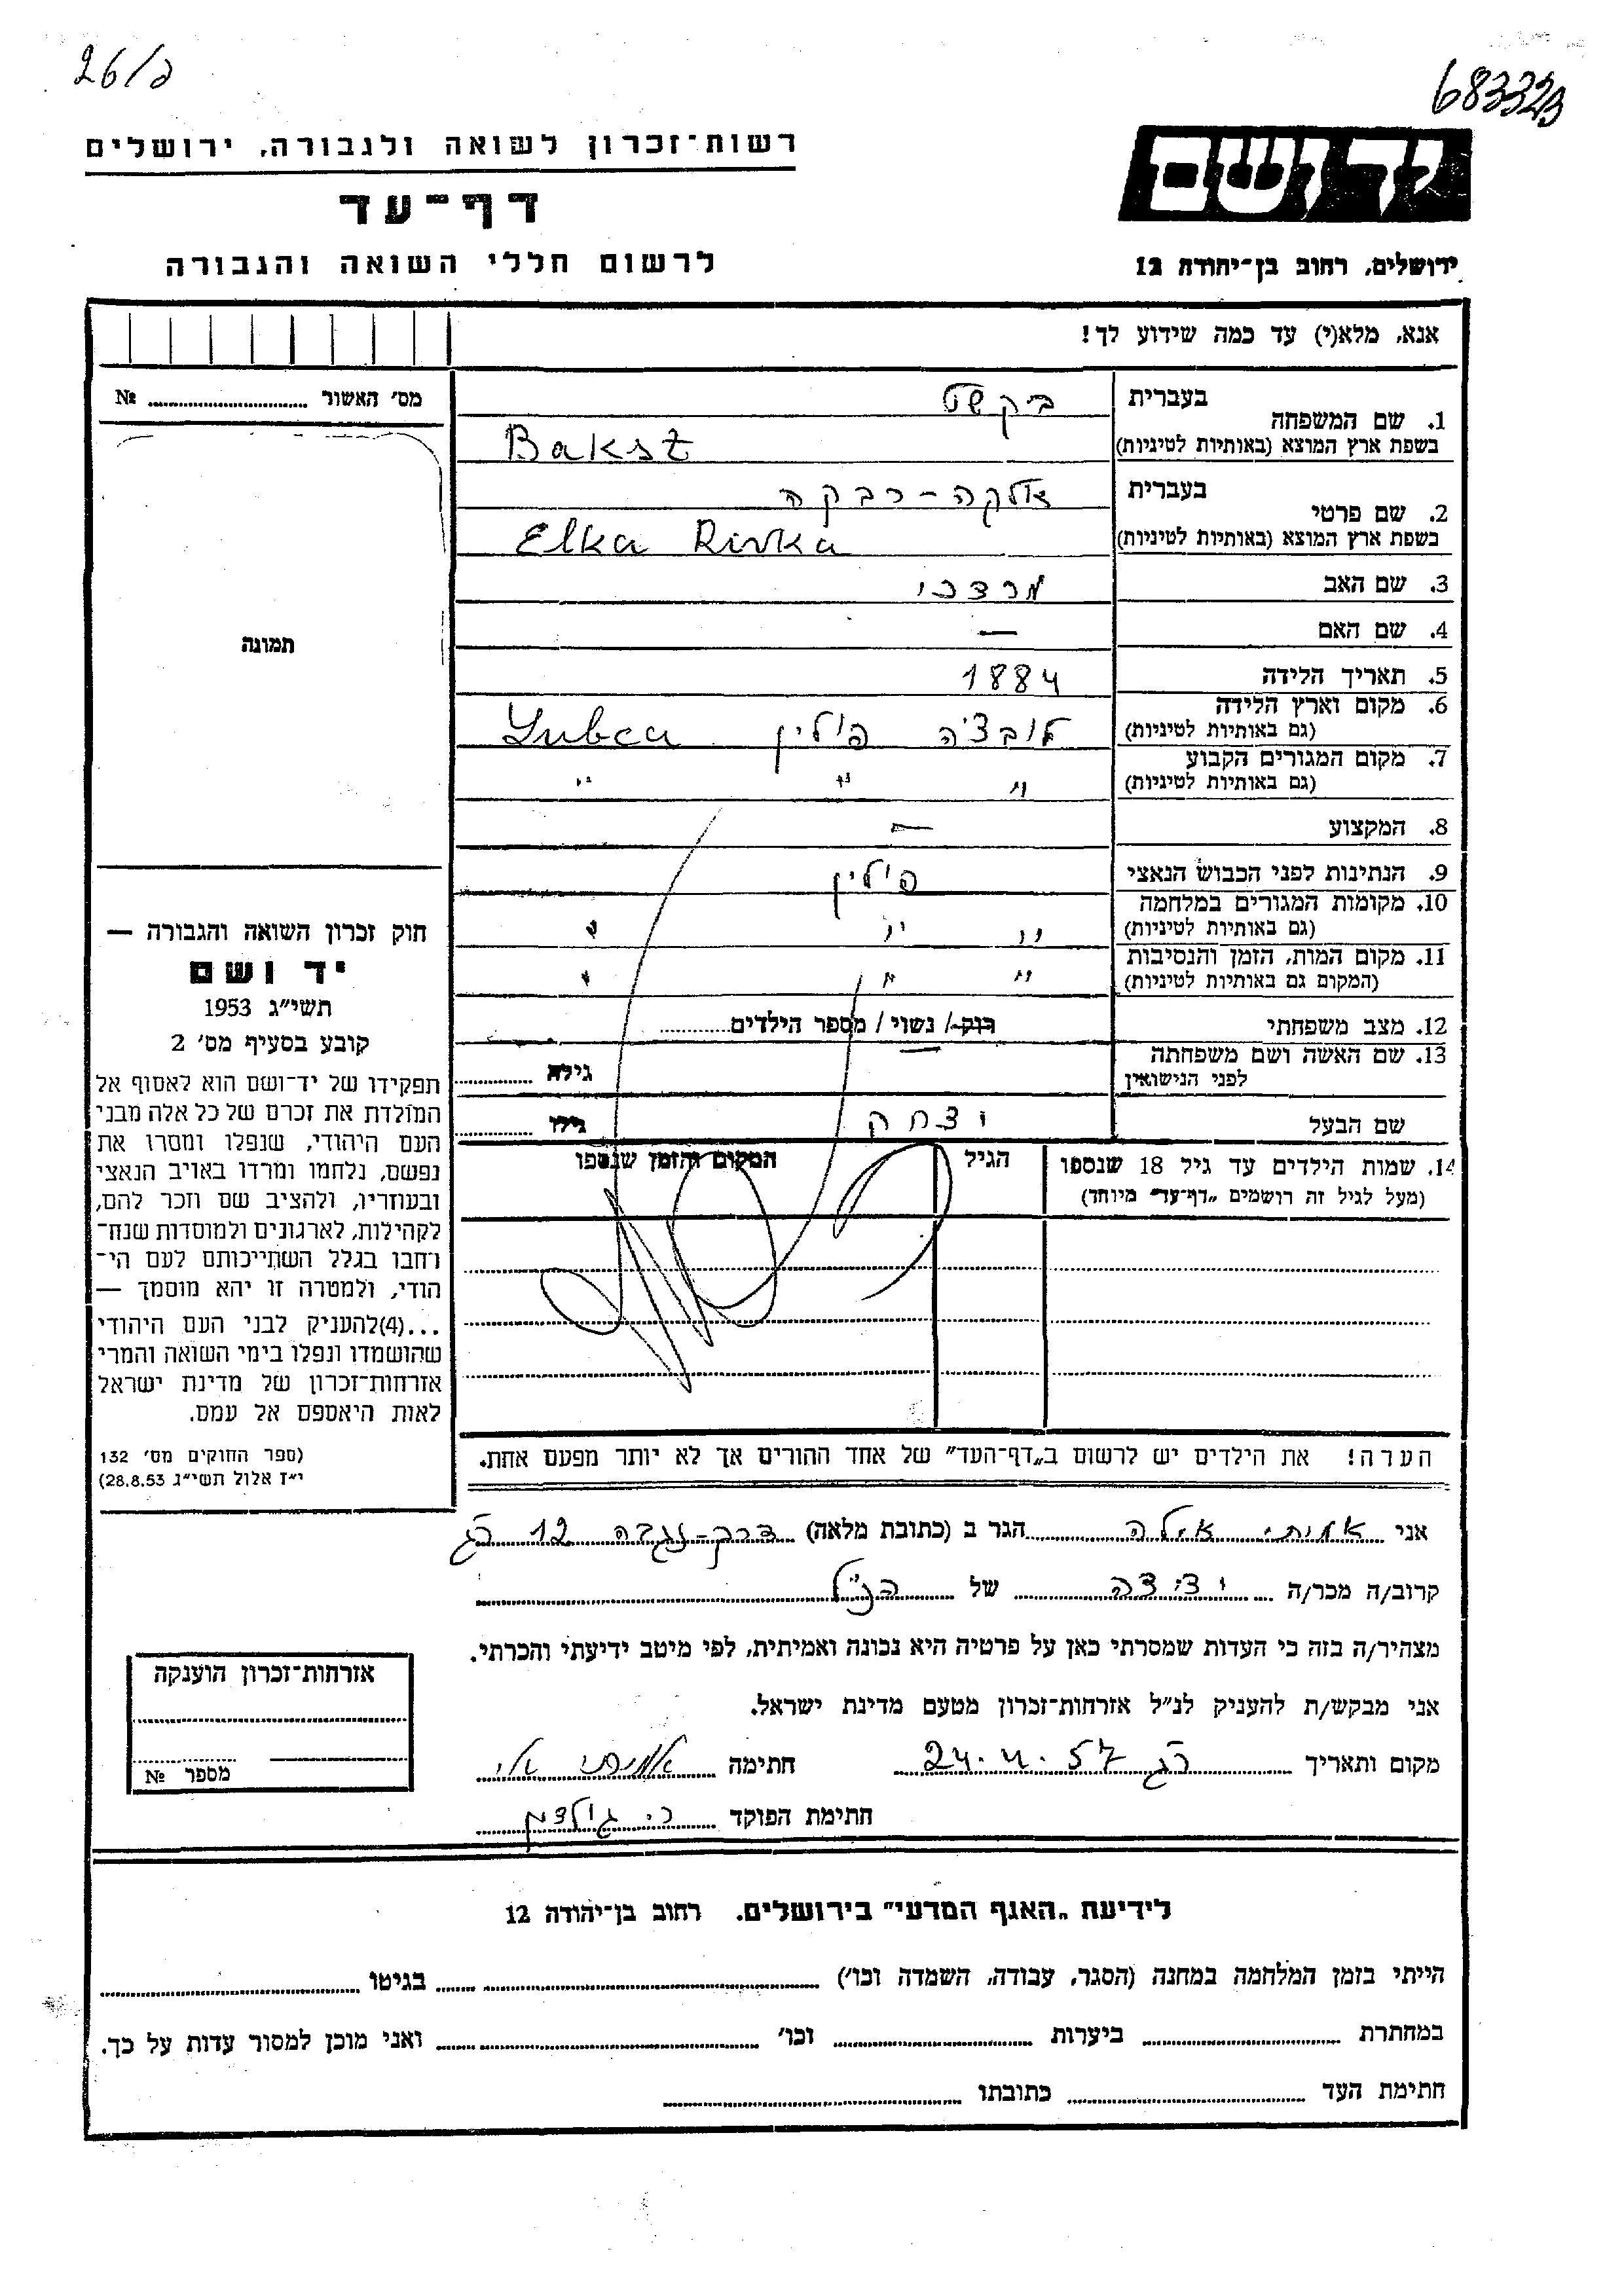 26/ב
683323
יד ושם
ירושלים, רחוב בן־יהודה 12
רשות־זכרון לשואה ולגבורה, ירושלים
דף־עד
לרשום חללי השואה והגבורה
אנא, מלא(י) עד כמה שידוע לך!
מס' האשור № 
תמונה
1. שם המשפחה
בעברית בקשט
בשפת ארץ המוצא (באותיות לטיניות) Bakszt
2. שם פרטי
בעברית אלקה-רבקה
בשפת ארץ המוצא (באותיות לטיניות) Elka Rivka
3. שם האב מרדכי
4. שם האם —
5. תאריך הלידה 1884
6. מקום וארץ הלידה לובצ'ה פולין Lubca
(גם באותיות לטיניות)
7. מקום המגורים הקבוע " " "
(גם באותיות לטיניות)
8. המקצוע —
9. הנתינות לפני הכבוש הנאצי פולין
10. מקומות המגורים במלחמה " " "
(גם באותיות לטיניות)
11. מקום המות, הזמן והנסיבות " " "
(המקום גם באותיות לטיניות)
12. מצב משפחתי רוק / נשוי / מספר הילדים
13. שם האשה ושם משפחתה
לפני הנישואין גילה
שם הבעל יצחק גילו
14. שמות הילדים עד גיל 18 שנספו הגיל המקום והזמן שנספו
(מעל לגיל זה רושמים „דף־עד” מיוחד)
הערה! את הילדים יש לרשום ב„דף־העד” של אחד ההורים אך לא יותר מפעם אחת.
חוק זכרון השואה והגבורה —
יד ושם
תשי"ג 1953
קובע בסעיף מס' 2
תפקידו של יד־ושם הוא לאסוף אל
המולדת את זכרם של כל אלה מבני
העם היהודי, שנפלו ומסרו את
נפשם, נלחמו ומרדו באויב הנאצי
ובעוזריו, ולהציב שם וזכר להם,
לקהילות, לארגונים ולמוסדות שנח־
רחבו בגלל השתייכותם לעם הי־
הודי, ולמטרה זו יהא מוסמך —
...(4)להעניק לבני העם היהודי
שהושמדו ונפלו בימי השואה והמרי
אזרחות־זכרון של מדינת ישראל
לאות היאספם אל עמם.
(ספר החוקים מס' 132
י"ז אלול תשי"ג 28.8.53)
אני אמיתי אילה הגר ב (כתובת מלאה) דרך-נגבה 12 רג
קרוב/ה מכר/ה ידידה של הנ"ל
מצהיר/ה בזה כי העדות שמסרתי כאן על פרטיה היא נכונה ואמיתית, לפי מיטב ידיעתי והכרתי.
אני מבקש/ת להעניק לנ"ל אזרחות־זכרון מטעם מדינת ישראל.
מקום ותאריך רג 24.4.57 חתימה אמיתי אי
חתימת הפוקד
אזרחות־זכרון הוענקה
מספר №
לידיעת „האגף המדעי” בירושלים. רחוב בן־יהודה 12
הייתי בזמן המלחמה במחנה (הסגר, עבודה, השמדה וכו') בגיטו
במחתרת ביערות וכו' ואני מוכן למסור עדות על כך.
חתימת העד כתובתו